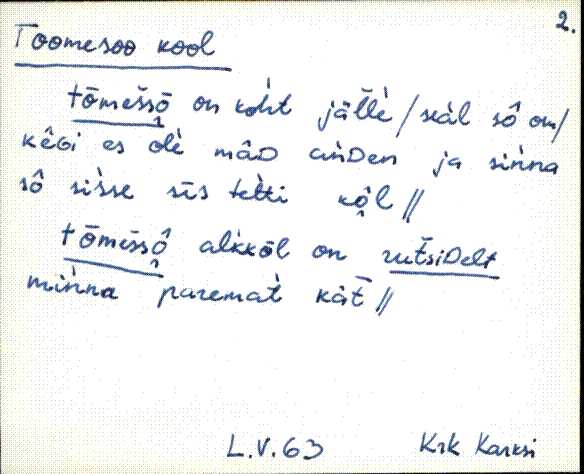 2.
Toomesoo kool
tōmes̀sō̭ on kòht jällè / seàl sô̭ om /
kêGi es olè mâD anDen ja sin̄na
sô sisse sīs tetti kō̭l //
tōmes̀sô̭ alkkōl on rutsiDelt
min̄na paremat̀ kät̄ //
L.V.63 Krk Karksi